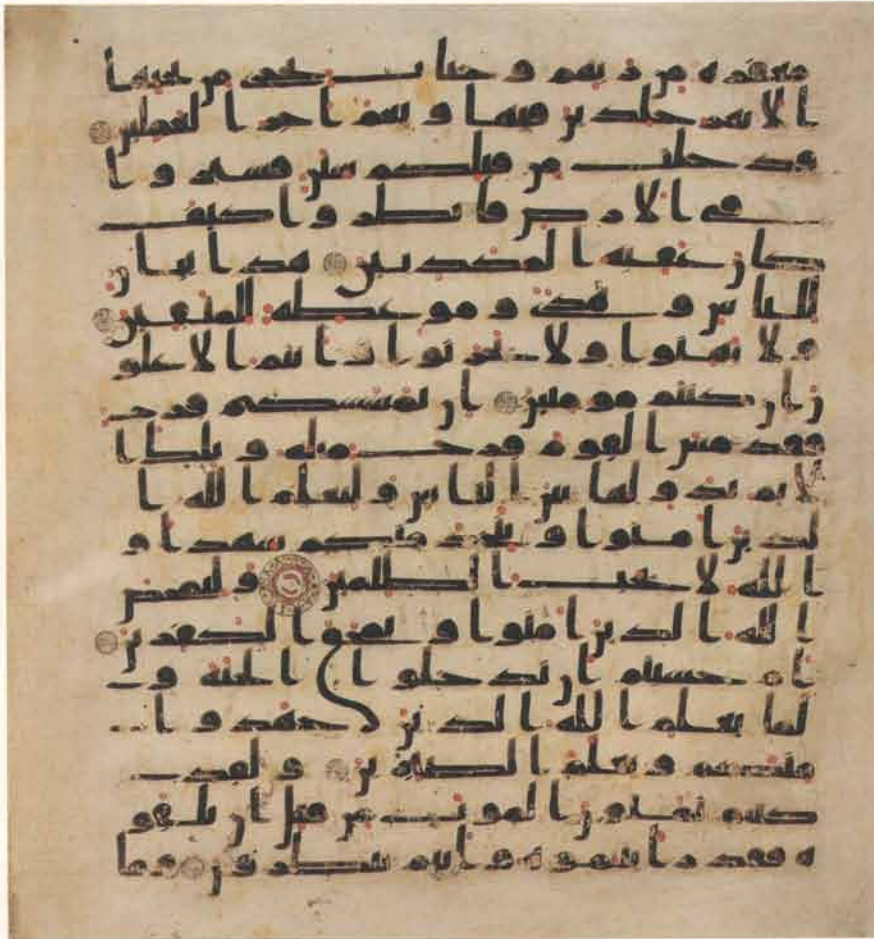 مغفرة من ربهم و جنت تجري من تحتها ا
لانهر خلدين فيها و نعم اجر ا لعملين
قد خلت من قبلكم سنن فسير و ا
في ا لارض فانظر و ا كيف
كان عقبة ا لمكذبين هذا بيان
للناس و هدى و موعظة للمتقين
و لا تهنوا و لا تحزنوا و ا نتم ا لا علو
ن ا ن كنتم مومنين ا ن يمسسكم قرح
فقد مس ا لقوم قرح مثله و تلك ا
لايم ندولها بين ا لناس و ليعلم ا لله ا
لذين ا منوا و يتخذ منكم شهدا و
ا لله لا يحب ا لظلمين و ليمحص
ا لله ا لذين ا منوا و يمحق ا لكفرين
ا م حسبتم ا ن تدخلوا ا لجنة و
لما يعلم ا لله ا لذين جهدو ا
منكم و يعلم ا لصبرين و لقد
كنتم تمنون ا لموت من قبل ا ن تلقو
ه فقد ر ا يتموه و ا نتم تنظرون و ما